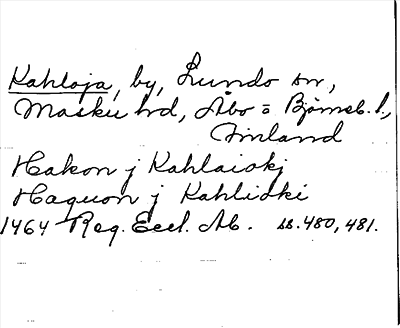 Kahloja, by, Lundo sn,
Masku hd, Åbo o Björneb. l.,
Finland
Hakon j Kahlaiokj
Haquon j Kahlioki
1464 Reg. Eccl. Ab. ss. 480, 481.